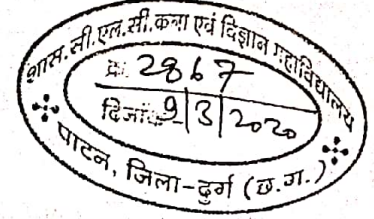 शास. सी.एल.सी. कला एवं विज्ञान महाविद्यालय
क्र. 2867
दिनांक 9/3/2020
पाटन, जिला-दुर्ग (छ.ग.)